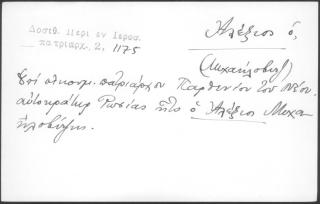 Δοσιθ. Περί εν Ιεροσ.
πατριαρχ. 2, 1175
Ἀλέξιος ὁ,
(Μιχαηλοβίτζ)
Ἐπὶ οἰκουμ. πατριάρχου Παρθενίου τοῦ νέου.
αὐτοκράτωρ Ρωσίας ἦτο ὁ Ἀλέξιος Μιχα
ηλοβίτζης.